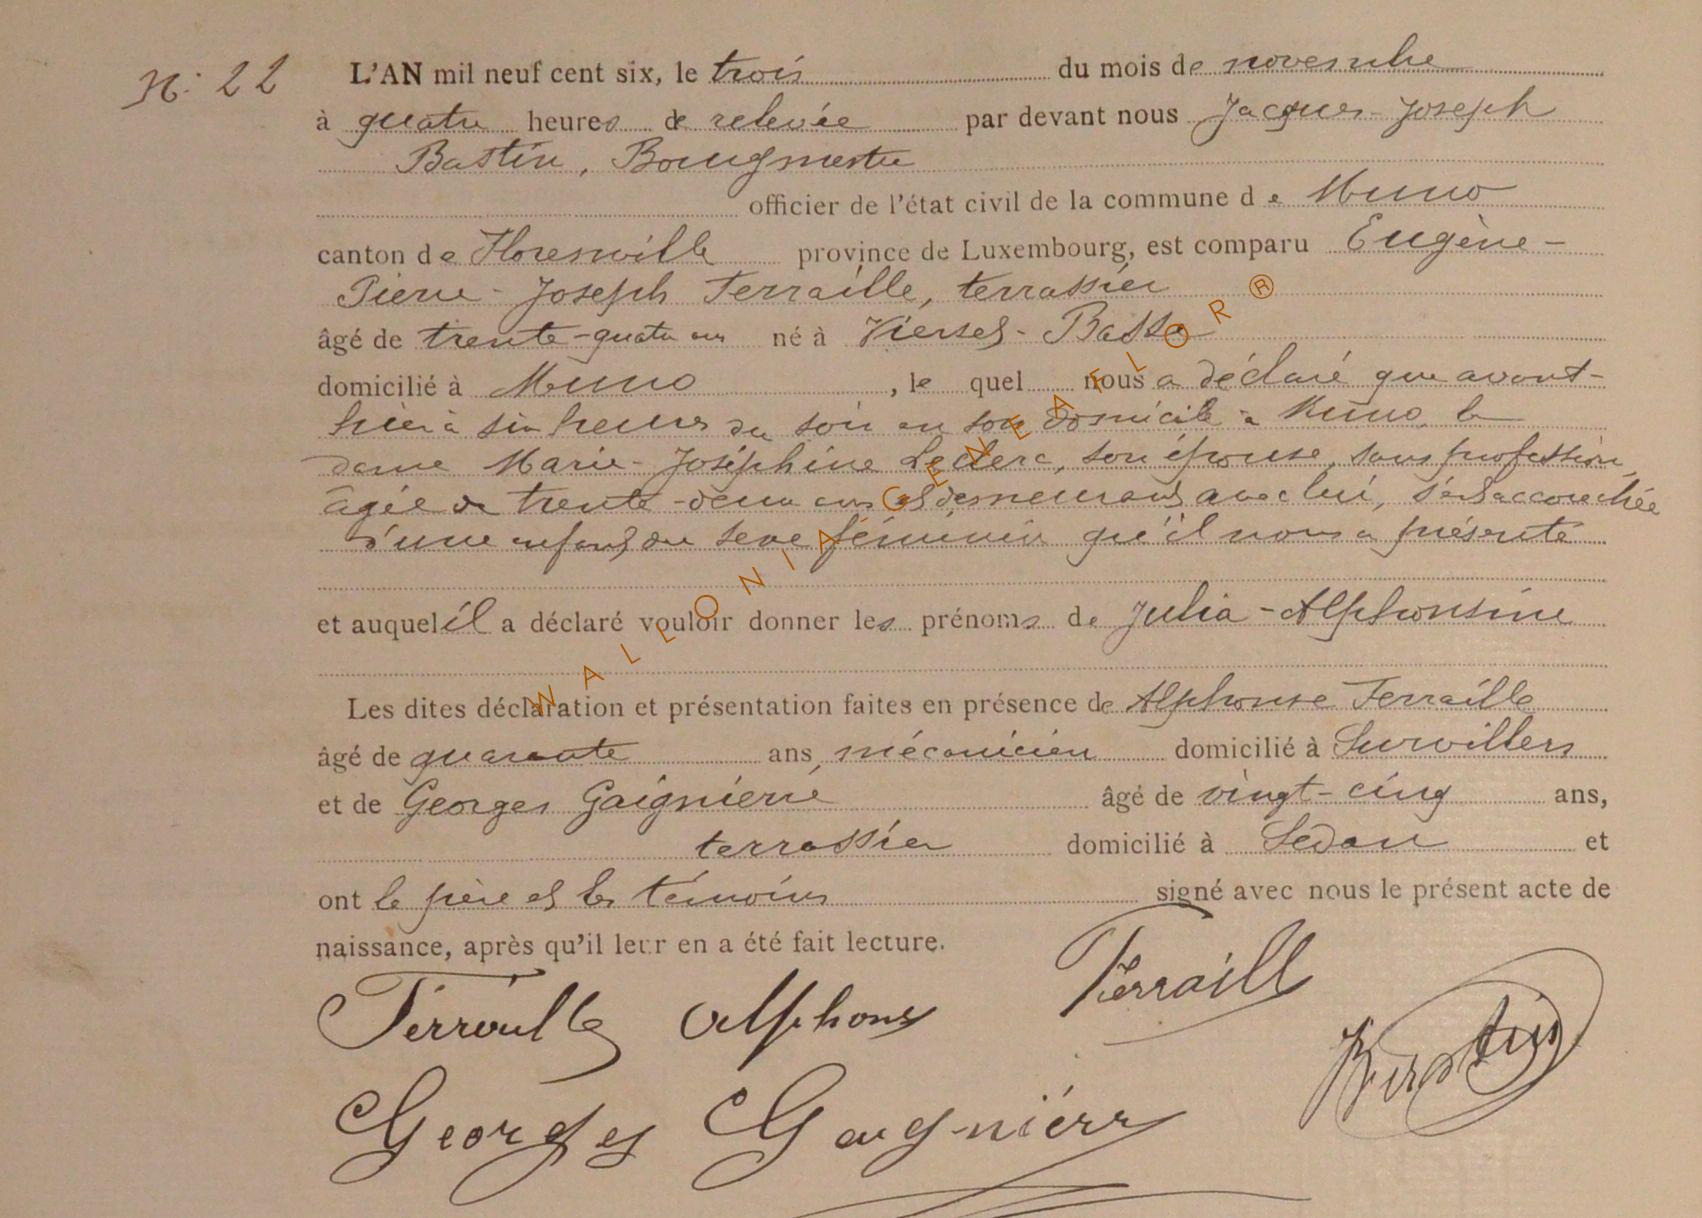 N: 22
L'AN mil neuf cent six, le trois du mois de novembre
à quatre heures de relevée par devant nous Jacques-Joseph
Bastin, Bourgmestre
officier de l'état civil de la commune de Muno
canton de Florenville province de Luxembourg, est comparu Eugène-
Pierre-Joseph Terraille, terrassier
âgé de trente-quatre ans né à Viersel-Basse
domicilié à Muno, le quel nous a déclaré que avant-
hier à six heures du soir en son domicile à Muno, la
dame Marie-Joséphine Leclerc, son épouse, sans profession,
âgée de trente-deux ans et demeurant avec lui, s'est accouchée
d'une enfant du sexe féminin qu'il nous a présenté
et auquel il a déclaré vouloir donner les prénoms de Julia-Alphonsine
Les dites déclaration et présentation faites en présence de Alphonse Terraille
âgé de quarante ans, mécanicien domicilié à Survillers
et de Georges Gaignierré âgé de vingt-cinq ans,
terrassier domicilié à Sedan et
ont le père et les témoins signé avec nous le présent acte de
naissance, après qu'il leur en a été fait lecture.
Terraille Alphons Terraill
Bastin
Georges Gaignièrr
WALLONIA GENEAFLOR ®